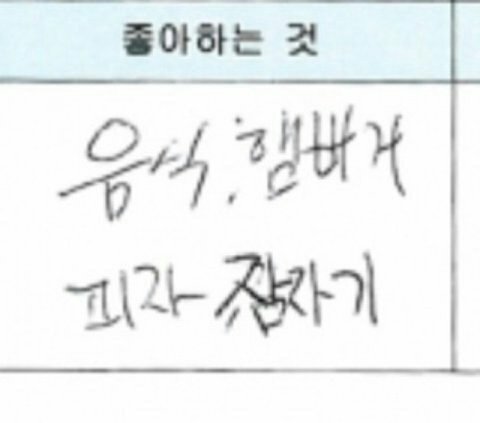 좋아하는 것
음식, 햄버거
피자 잠자기